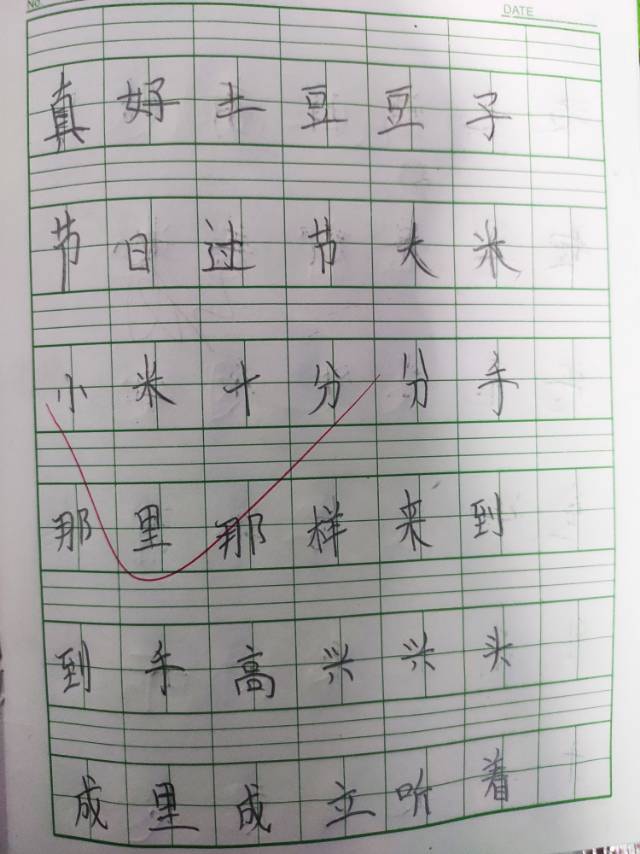 No.
DATE
真好土豆豆子
节日过节大米
小米十分分手
那里那样来到
到手高兴兴头
成里成立听着